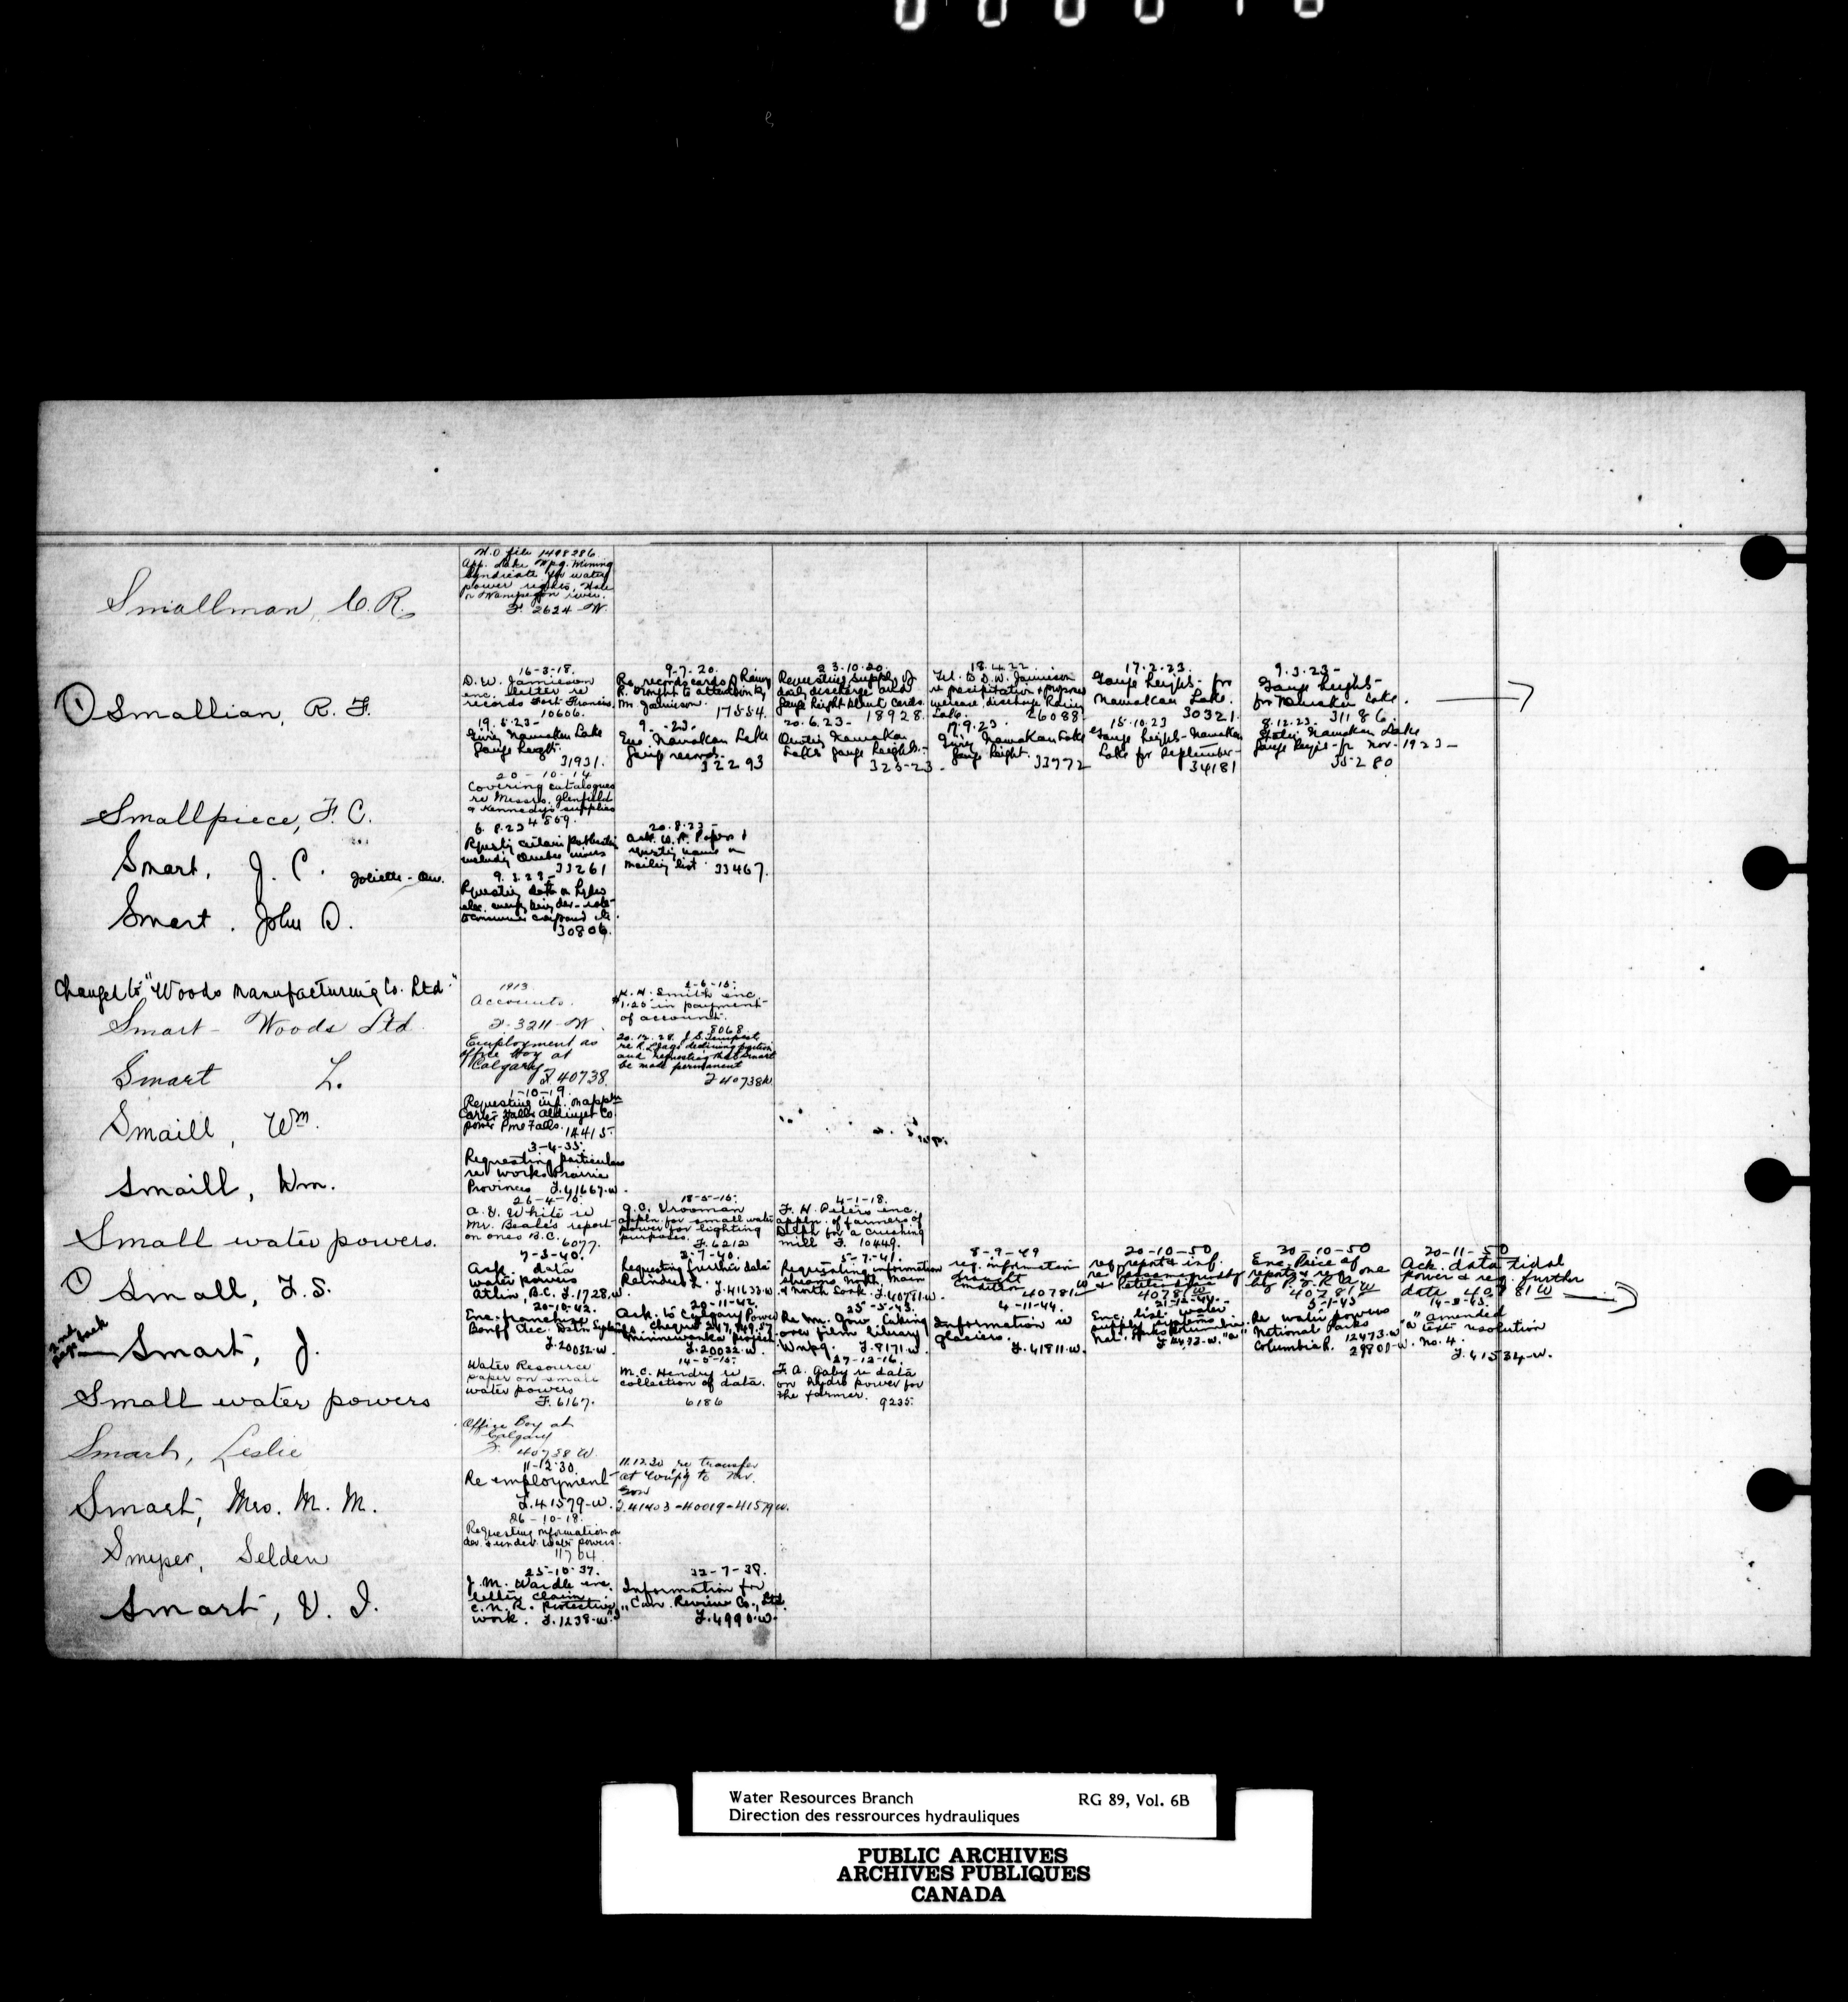 Smallman, C. R.
H.O file 1498286
App. Lake Wpg. Mining
Syndicate for water
power rights, Hole
or Wanipigon river.
F. 2624-W.
① Smallian, R. F.
16-3-18.
D. W. Jamieson
enc. letter re
records Fort Francis.
10606.
9-7-20.
Re records cards of Rainy
R. brought to attention by
Mr Jamieson.
17554.
23.10.20.
Requesting supply of
daily discharge and
gauge height blank cards.
18928.
18.4.22.
Tel. to D.W. Jamieson
re precipitation & proposed
increase discharge Rainy
Lake. 26088
17.2.23.
Gauge heights - for
Namakan Lake.
30321
9.3.23-
Gauge heights-
for Namakan Lake.
31186
19.5.23-
Giving Namakan Lake
Gauge height.
31931.
9. -23-
Enc. Namakan Lake
Gauge records.
32293
20.6.23-
Quoting Namakan
Lake gauge heights.-
325-23-
17.9.23
Giving Namakan Lake
gauge height. 33772
15.10.23
Gauge heights-Namakan
Lake for September-
34181
8.12.23-
Stating Namakan Lake
gauge heights-for Nov-1923-
35280
Smallpiece, F. C.
20-10-14
Covering catalogues
re Messrs. Glenfield
& Kennedy's supplies
4559.
Smart, J. C. Joliette-Que.
6.8.23
Requesting certain publications
including Quebec rivers
33261
20.8.23-
Ack. W. R. Paper &
requesting name on
mailing list 33467.
Smart, John D.
9.3.23-
Requesting data on hydro
elec. energy being dev.
30806.
Changed to "Woods Manufacturing Co. Ltd."
Smart-Woods Ltd.
1913
Accounts.
F. 3211-W.
2-6-15.
H. H. Smith enc.
$1.20 in payment
of account.
8068.
Smart L.
Employment as
office boy at
Calgary
F 40738.
20.12.28. J. S. Tempest
re K. L. Gage declining position
and requesting that Smart
be made permanent
F 40738W
Smaill, Wm.
1-10-19.
Requesting inf. on appln
Carter Halls Aldinger Co.
power Pine Falls. 14415.
Smaill, Wm.
3-4-35.
Requesting particulars
re works Prairie
Provinces F.41667-w.
Small water powers.
26-4-15.
A. V. White re
Mr. Beale's report
on ones B.C. 6077.
18-5-15.
G. C. Vrooman
appln. for small water
power for lighting
purposes. F. 6212
4-1-18.
F. H. Peters enc.
appln. of farmers of
Delph for a crushing
mill F. 10449.
① Small, F. S.
7-3-40.
Ask. data
water powers
Atlin, B.C. F.1728.w.
3-7-40.
Requesting further data
Reindeer L. F.41633.w.
5-7-41.
Requesting information
streams North, Main
& North Sask. F.40781.w.
8-9-49
req. information
drought
condition 40781 W
20-10-50
ref report & inf.
re Passamaquoddy
& Petitcodiac
40781 W
30-10-50
Enc. Price of
reports & req one
by P. F. R. A.
40781 W
20-11-50
Ack. data Tidal
power & req. further
data 40781 W
2nd page back
Smart, J.
20-10-42.
Enc. franchise
Banff Elec. Distn System
F.20032.w.
20-11-42.
Ack. to Calgary Power
Co. cheque 247,749.57
Minnewanka project
F.20032.w.
25-5-43.
Re Mr. Gow taking
over films library
Wnpg. F.8171.w.
4-11-44.
Information re
glaciers.
F.41811.w.
21-12-44.
Enc. list water
supply systems
Nat. Parks Columbia.
F 2493-w. "a"
5-1-45
Re water powers
National Parks
Columbia R. 12473.w
29800-w.
14-3-45.
" amended
"a" text resolution
no. 4.
F.41534-w.
Small water powers
Water Resource
paper on small
water powers
F. 6167.
14-5-15.
M. C. Hendry re
collection of data.
6186
27-12-16.
F. A. Gaby re data
on hydro power for
the farmer. 9235.
Smart, Leslie
Office Boy at
Calgary
F. 40738 W.
Smart, Mrs. M. M.
11-12-30
Re employment
F.41579-w.
11.12.30 re transfer
at Winpg to Mr.
Gow
F.41403-40019-41579w.
Smyser, Selden
26-10-18.
Requesting information on
dev. & undev. water powers.
11704
Smart, V. I.
25-10-37.
J. M. Wardle enc.
letter claim
C.N.R. protective
work. F.1238-w
22-7-38.
Information for
"Can. Review Co., Ltd.
F.4990-w.
Water Resources Branch RG 89, Vol. 6B
Direction des ressrources hydrauliques
PUBLIC ARCHIVES
ARCHIVES PUBLIQUES
CANADA